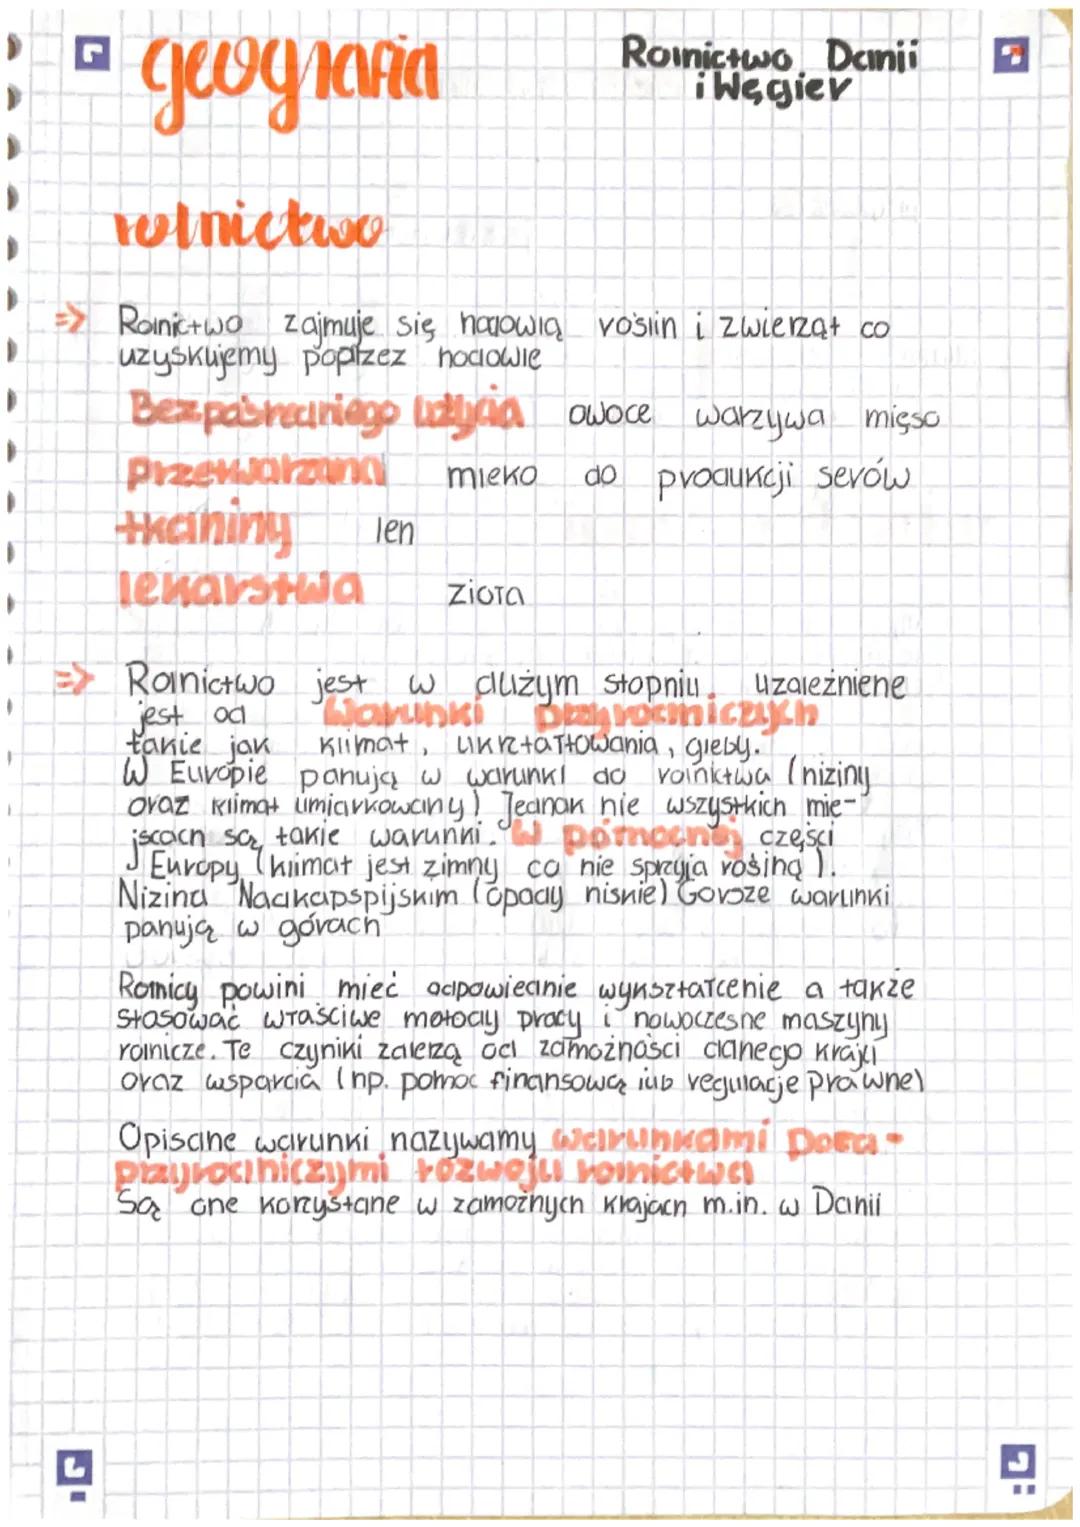 geografia
Rolnictwo Danii
i Węgier
rolnictwo
=> Rolnictwo zajmuje się hodowlą roślin i zwierząt co
uzyskujemy poprzez hodowle
Bezpośredniego użycia owoce warzywa mięso
przetwarzana mleko do produkcji serów
tkaniny len
lekarstwa zioła
=> Rolnictwo jest w dużym stopniu. uzależnione
jest od Warunki przyrodniczych
takie jak klimat, ukształtowania, gleby.
W Europie panują w warunki do rolnictwa (niziny
oraz klimat umiarkowany) Jednak nie wszystkich mie-
jscach są takie warunki. W północnej części
Europy (klimat jest zimny co nie sprzyja rośliną).
Nizina Nadkapspijskim (opady niskie) Gorsze warunki
panują w górach
Rolnicy powini mieć odpowiednie wykształcenie a także
stosować właściwe metody pracy i nowoczesne maszyny
rolnicze. Te czyniki zależą od zamożności danego kraju
oraz wsparcia (np. pomoc finansową lub regulacje prawne)
Opisane warunki nazywamy warunkami poza-
przyrodniczymi rozwoju rolnictwa
Są one korzystane w zamożnych krajach m.in. w Danii